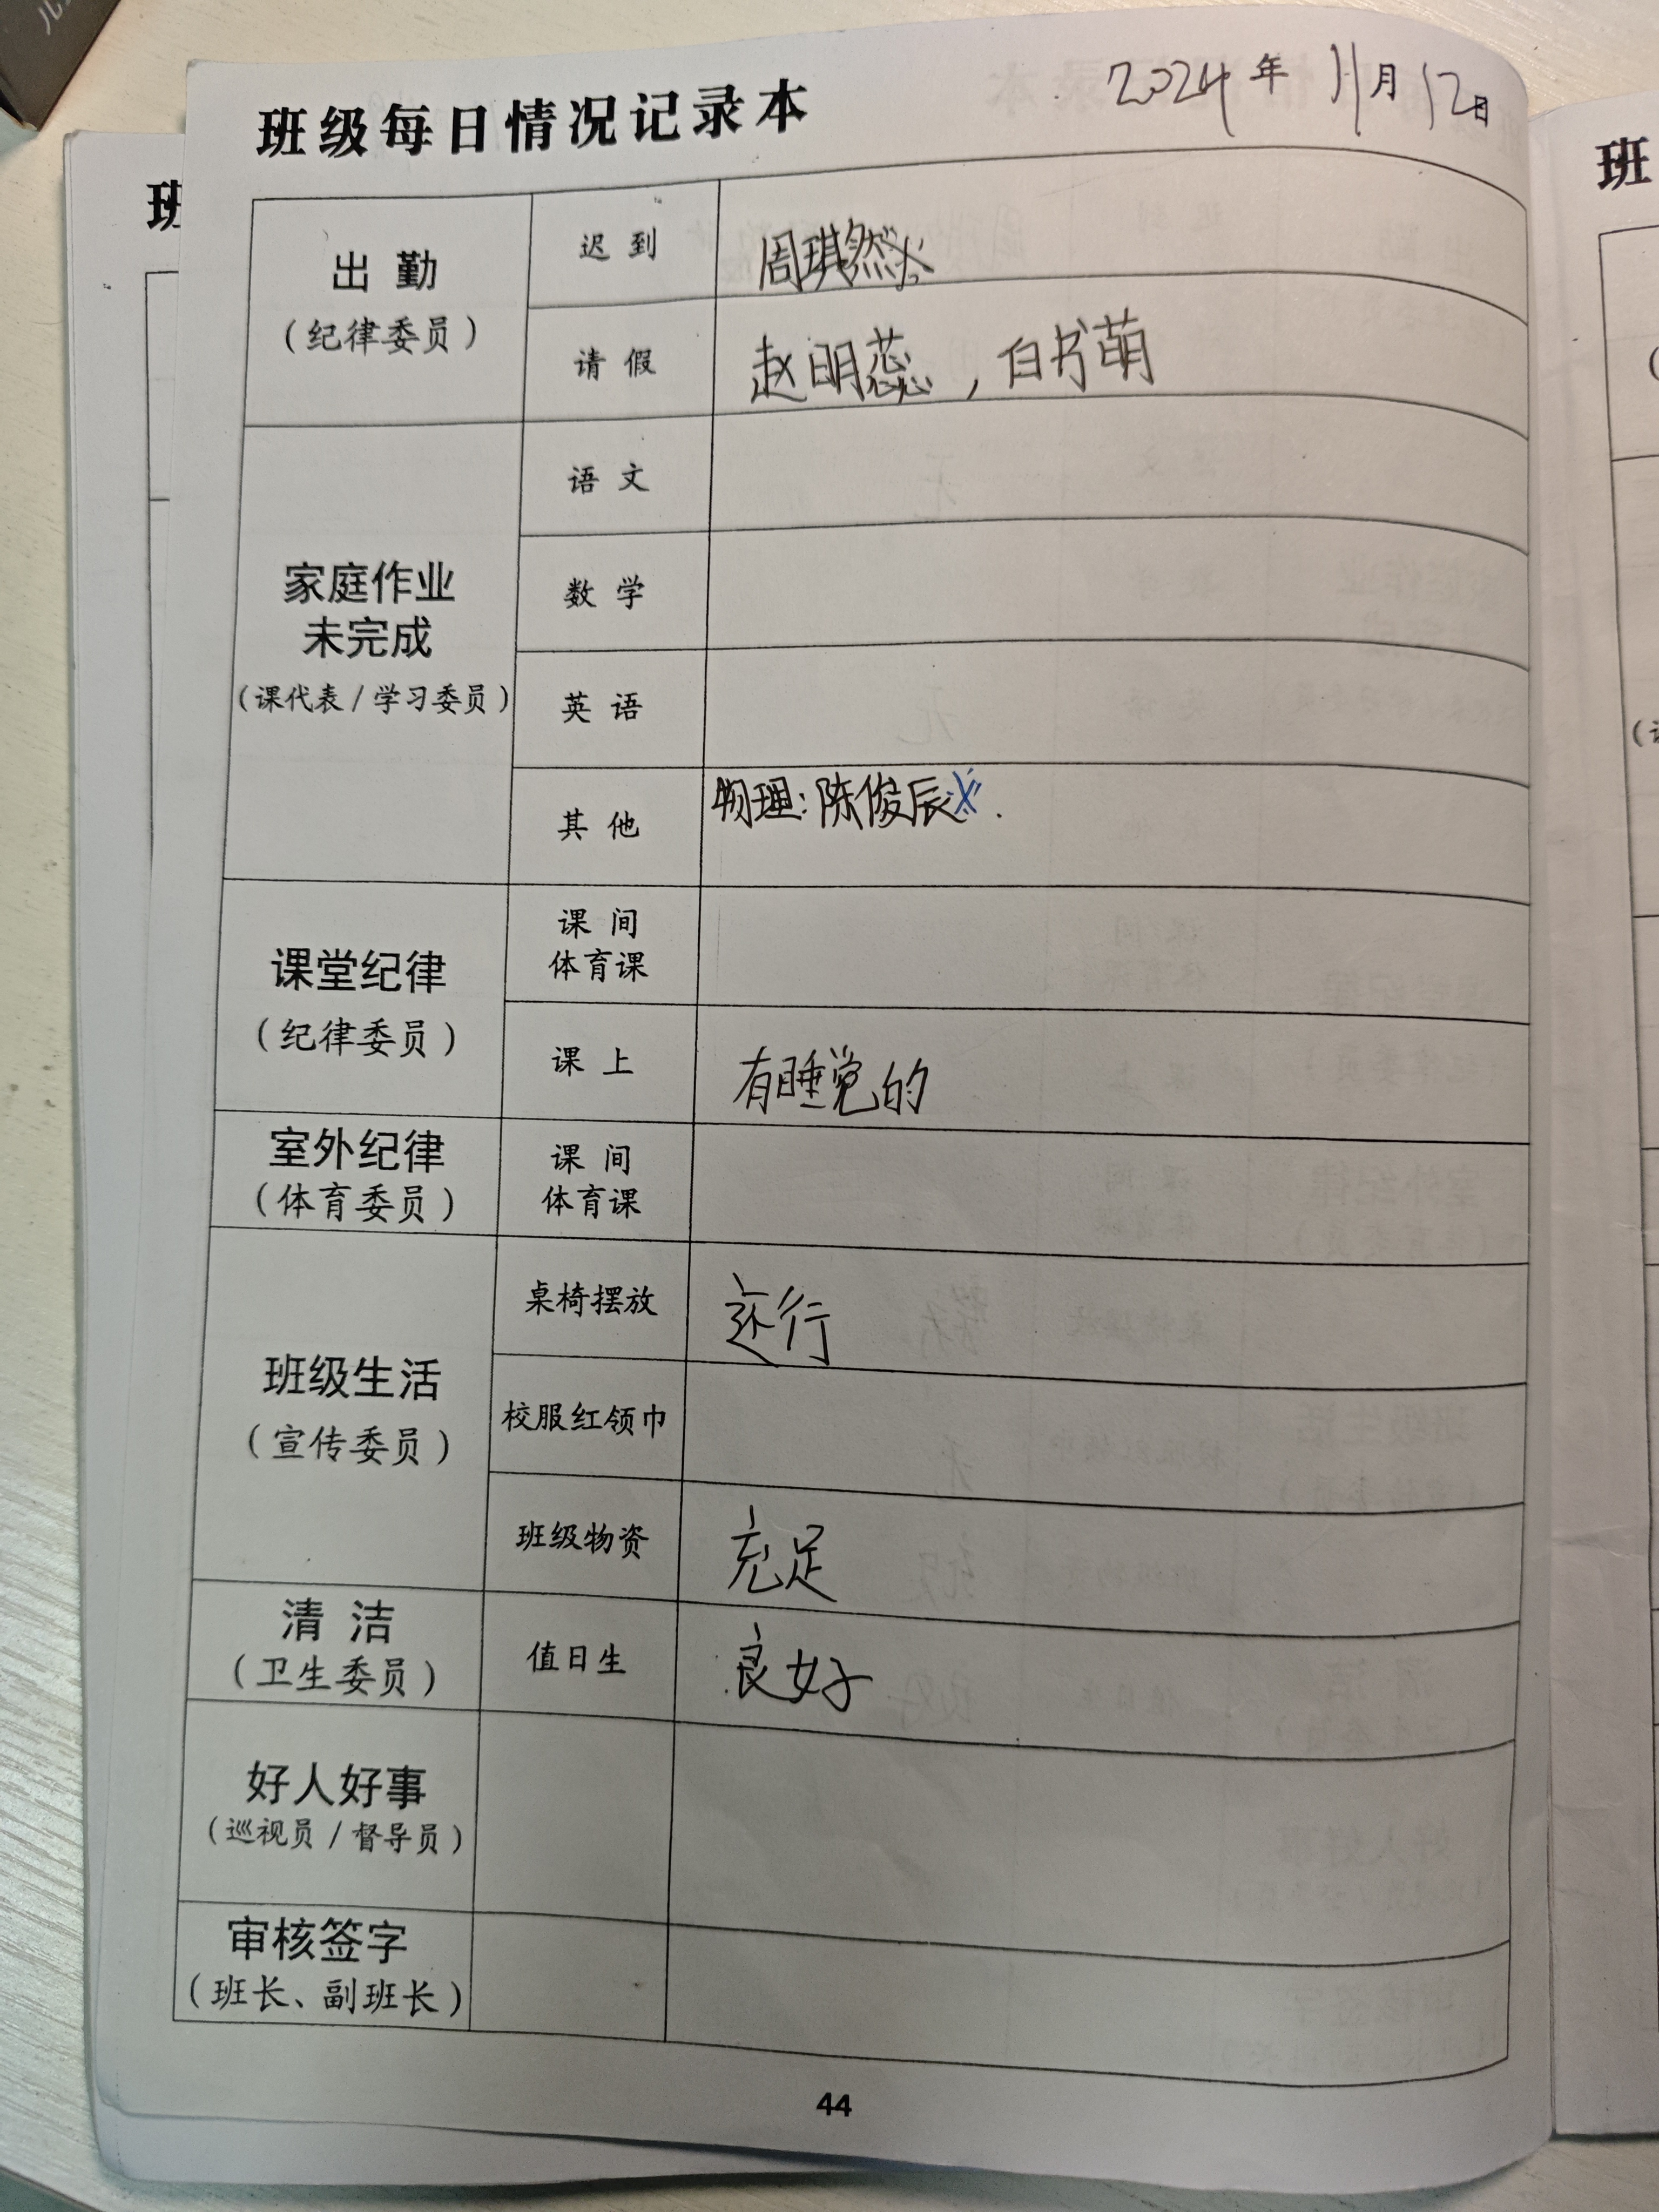 班级每日情况记录本
2024年11月12日
出勤
（纪律委员）
迟到
周琪然
请假
赵明蕊，白书萌
家庭作业
未完成
（课代表/学习委员）
语文
数学
英语
其他
物理：陈俊辰
课堂纪律
（纪律委员）
课间
体育课
课上
有睡觉的
室外纪律
（体育委员）
课间
体育课
班级生活
（宣传委员）
桌椅摆放
还行
校服红领巾
班级物资
充足
清洁
（卫生委员）
值日生
良好
好人好事
（巡视员/督导员）
审核签字
（班长、副班长）
44
班
班